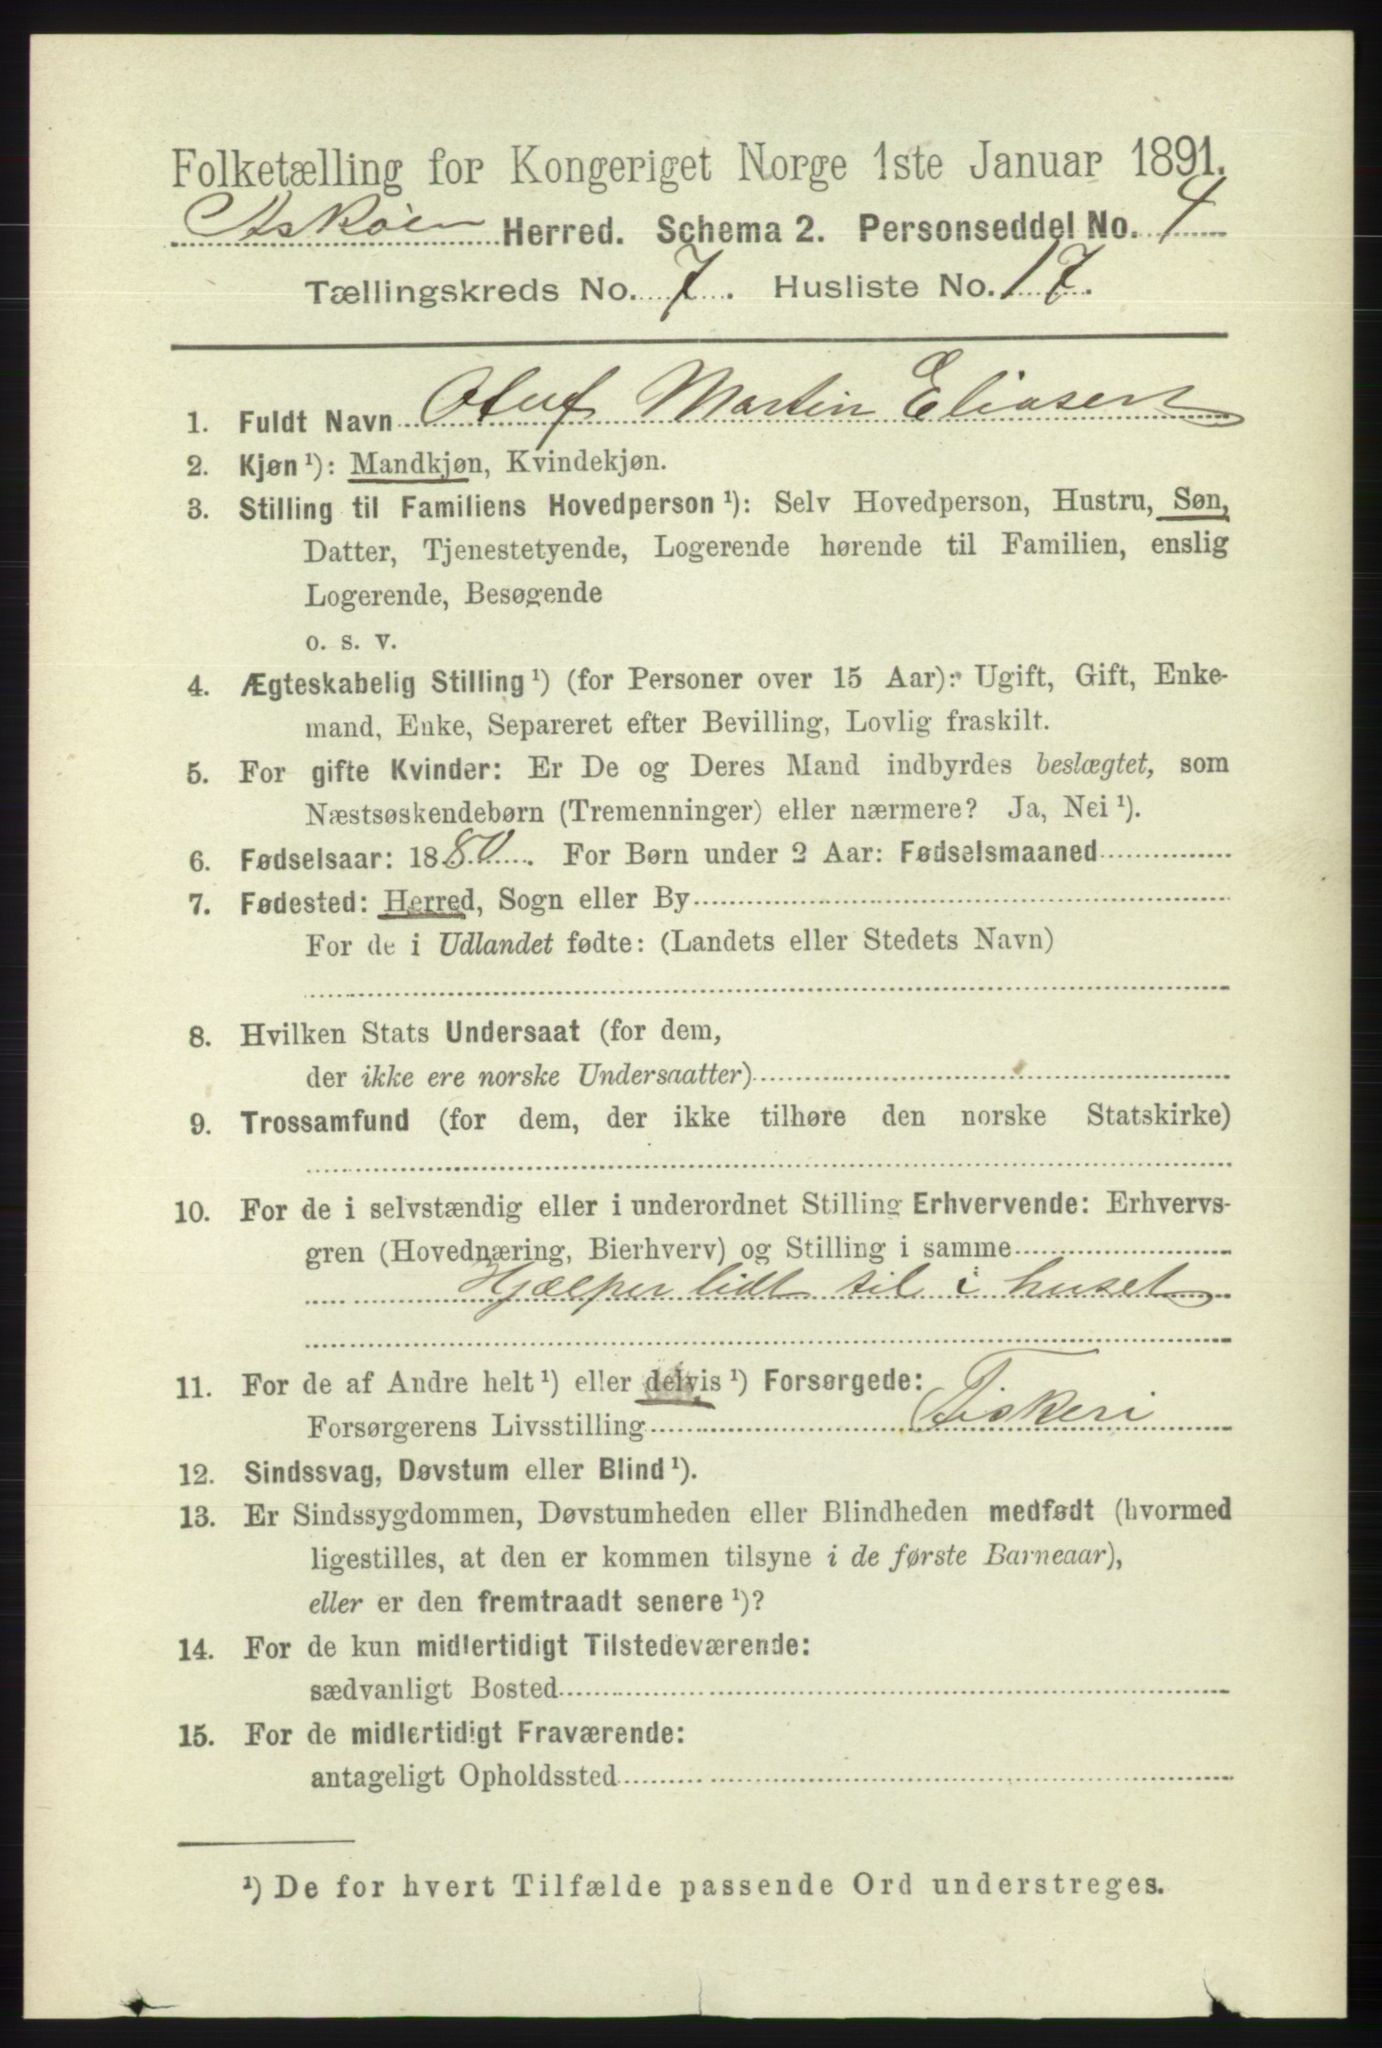 Folketælling for Kongeriget Norge 1ste Januar 1891.
Askøen Herred. Schema 2. Personseddel No. 4
Tællingskreds No. 7. Husliste No. 17.
1. Fuldt Navn Oluf Martin Eliasen
2. Kjøn ¹): Mandkjøn, Kvindekjøn.
3. Stilling til Familiens Hovedperson ¹): Selv Hovedperson, Hustru, Søn,
Datter, Tjenestetyende, Logerende hørende til Familien, enslig
Logerende, Besøgende
o. s. v.
4. Ægteskabelig Stilling ¹) (for Personer over 15 Aar): Ugift, Gift, Enke-
mand, Enke, Separeret efter Bevilling, Lovlig fraskilt.
5. For gifte Kvinder: Er De og Deres Mand indbyrdes beslægtet, som
Næstsøskendebørn (Tremenninger) eller nærmere? Ja, Nei ¹).
6. Fødselsaar: 1880. For Børn under 2 Aar: Fødselsmaaned
7. Fødested: Herred, Sogn eller By
For de i Udlandet fødte: (Landets eller Stedets Navn)
8. Hvilken Stats Undersaat (for dem,
der ikke ere norske Undersaatter)
9. Trossamfund (for dem, der ikke tilhøre den norske Statskirke)
10. For de i selvstændig eller i underordnet Stilling Erhvervende: Erhvervs-
gren (Hovednæring, Bierhverv) og Stilling i samme
Hjælper lidt til i huset
11. For de af Andre helt ¹) eller delvis ¹) Forsørgede:
Forsørgerens Livsstilling Fiskeri
12. Sindssvag, Døvstum eller Blind ¹).
13. Er Sindssygdommen, Døvstumheden eller Blindheden medfødt (hvormed
ligestilles, at den er kommen tilsyne i de første Barneaar),
eller er den fremtraadt senere ¹)?
14. For de kun midlertidigt Tilstedeværende:
sædvanligt Bosted
15. For de midlertidigt Fraværende:
antageligt Opholdssted
¹) De for hvert Tilfælde passende Ord understreges.